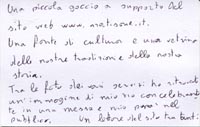 Una piccola goccia a supporto del
sito web www.matisone.it.
Una fonte di cultura e una vetrina
delle nostre tradizioni e della nostra
storia.
Tra le foto dei vari servizi ho
un'immagine di mio zio concelebrante
in una messa e mio papà nel
pubblico. Un lettore del sito